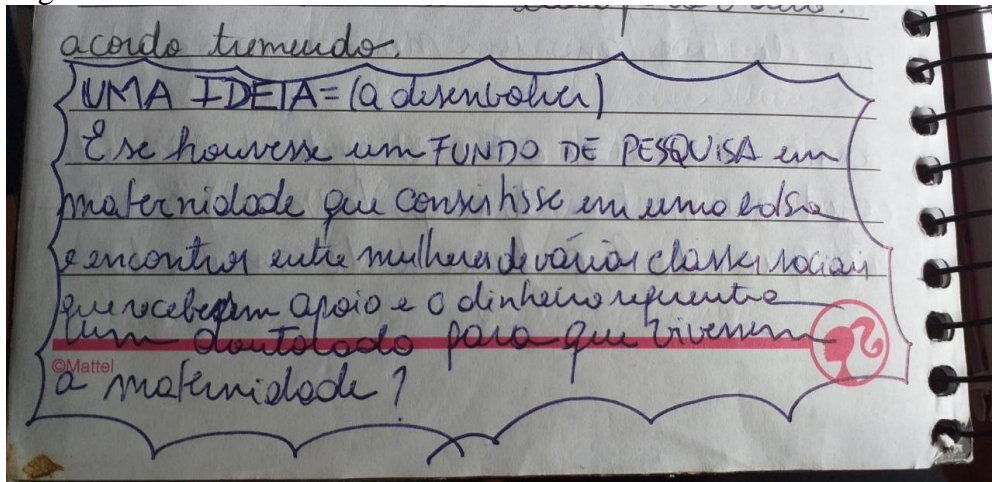 acordo tremendo.
UMA IDEIA = (a desenvolver)
E se houvesse um FUNDO DE PESQUISA em
maternidade que consistisse em uma bolsa
e encontros entre mulheres de várias classes sociais
que recebessem apoio e o dinheiro referente a
um doutorado para que vivessem
©Mattel
a maternidade?